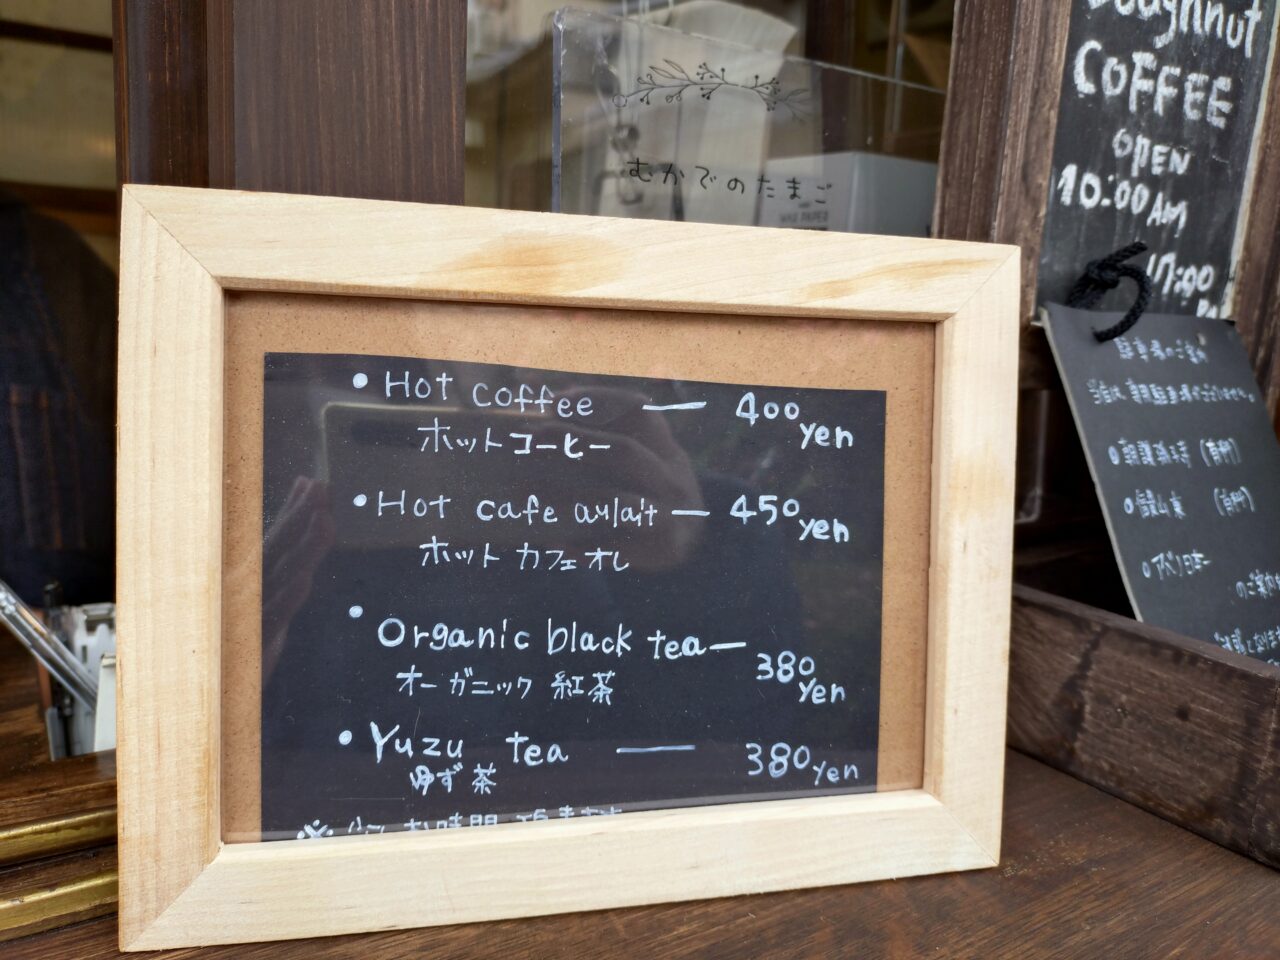 むかでのたまご
Doughnut
COFFEE
OPEN
10:00AM
17:00
• Hot coffee — 400yen
ホットコーヒー
• Hot cafe au lait — 450yen
ホットカフェオレ
• Organic black tea — 380yen
オーガニック 紅茶
• Yuzu tea — 380yen
ゆず茶
駐車場のご案内
(有料)
(有料)